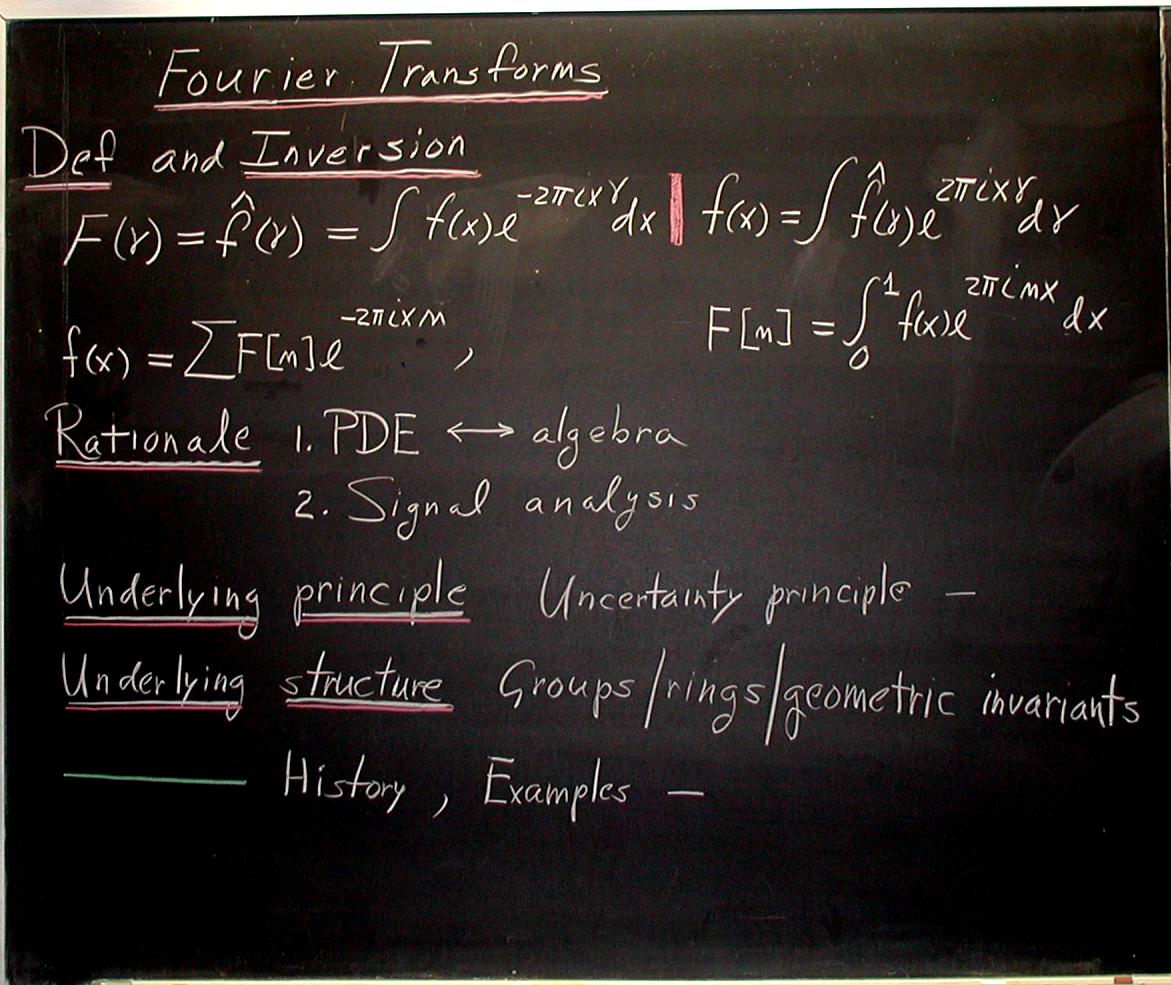 Fourier Transforms
Def and Inversion
F(γ) = f̂(γ) = ∫ f(x)e^{-2πixγ}dx | f(x) = ∫ f̂(γ)e^{2πixγ}dγ
f(x) = ∑F[n]e^{-2πixn} , F[n] = ∫₀¹ f(x)e^{2πinx} dx
Rationale 1. PDE ↔ algebra
2. Signal analysis
Underlying principle Uncertainty principle —
Underlying structure Groups/rings/geometric invariants
History , Examples —